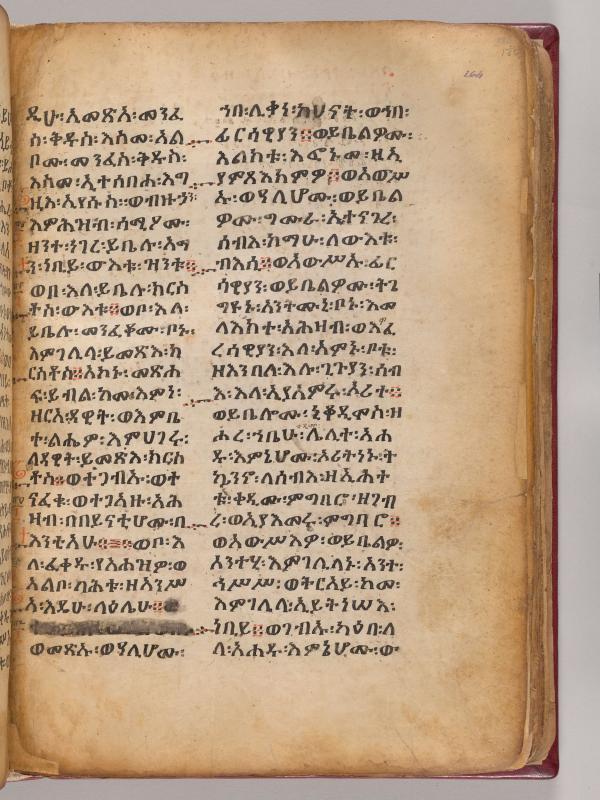 ዲሁ፡አመጽአ፡መንፈ
ስ፡ቅዱስ፡እስመ፡አል
ቦሙ፡መንፈስ፡ቅዱስ፡
እስመ፡ኢተሰብሐ፡እግ
ዚእ፡ኢየሱስ፡ወብዙኃን፡
እምሕዝብ፡ሰሚዖሙ፡
ዘንተ፡ነገረ፡ይቤሉ፡አማ
ን፡ነቢይ፡ውእቱ፡ዝንቱ።
ወቦ፡እለ፡ይቤሉ፡ክርስ
ቶስ፡ውእቱ።ወቦ፡እለ፡
ይቤሉ፡መንፈቆሙ፡ቦኑ፡
እምገሊላ፡ይመጽእ፡ክ
ርስቶስ።አኮኑ፡መጽሐ
ፍ፡ይብል፡ከመ፡እምነ፡
ዘርአ፡ዳዊት፡ወእምቤ
ተ፡ልሔም፡እምሀገሩ፡
ለዳዊት፡ይመጽእ፡ክርስ
ቶስ።ወተጋብኡ፡ወት
ናፈቁ፡ወተጋእዙ፡አሕ
ዛብ፡በበይናቲሆሙ፡በ
እንቲአሁ።ወቦ፡እ
ለ፡ፈቀዱ፡የአሕዝዎ፡ወ
አልቦ፡ባሕቱ፡ዘአንሥ
አ፡እዴሁ፡ላዕሌሁ።
ወመጽኡ፡ወዓሊሆሙ፡
ኀበ፡ሊቃነ፡ካህናት፡ወኀበ፡
ፈርሰዊያን።ወይቤልዎሙ፡
አልክቱ፡እፎኑመ፡ዘኢ
ያምጻእክምዎ።ወአውሥ
ኡ፡ወዓሊሆሙ፡ወይቤል
ዎሙ፡ግሙራ፡ኢተናገረ፡
ሰብእ፡ከማሁ፡ለውእቱ፡
ብእሲ።ወአውሥኡ፡ፈር
ሰዊያን፡ወይቤልዎሙ፡ትጌ
ግዩኑ፡አንትሙኒ፡ቦኑ፡እመ
ላእክተ፡አሕዛብ፡ወእፈ
ረሰዊያን፡እለ፡አምኑ፡ቦቱ፡
ዘእንበለ፡እሉ፡ጊጉያን፡ሰብ
እ፡እለ፡ኢያአምሩ፡ኦሪተ።
ወይቤሎሙ፡ኒቆዲሞስ፡ዘ
ሖረ፡ኀቤሁ፡ሌሊተ፡አሐ
ዱ፡እምኔሆሙ፡ኦሪትነኑ፡ት
ኴንኖ፡ለሰብእ፡ዘኢሕተ
ቱ፡ቀዲሙ፡ምግባሮ፡ዘገብ
ረ፡ወኢያእመሩ፡ምግባሮ።
ወአውሥእዎ፡ወይቤልዎ፡
አንተሂ፡እምገሊላኑ፡አንተ፡
ኅሥሥ፡ወትርአይ፡ከመ፡
እምገሊላ፡ኢይትነሣእ፡
ነቢይ።ወገብኡ፡ካዕበ፡ለ
ለ፡አሐዱ፡እምኔሆሙ፡ው